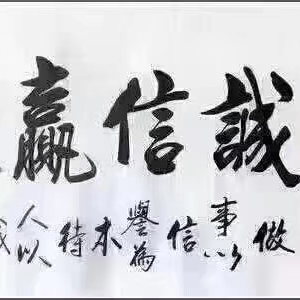 誠信贏
做事以信譽為本待人以